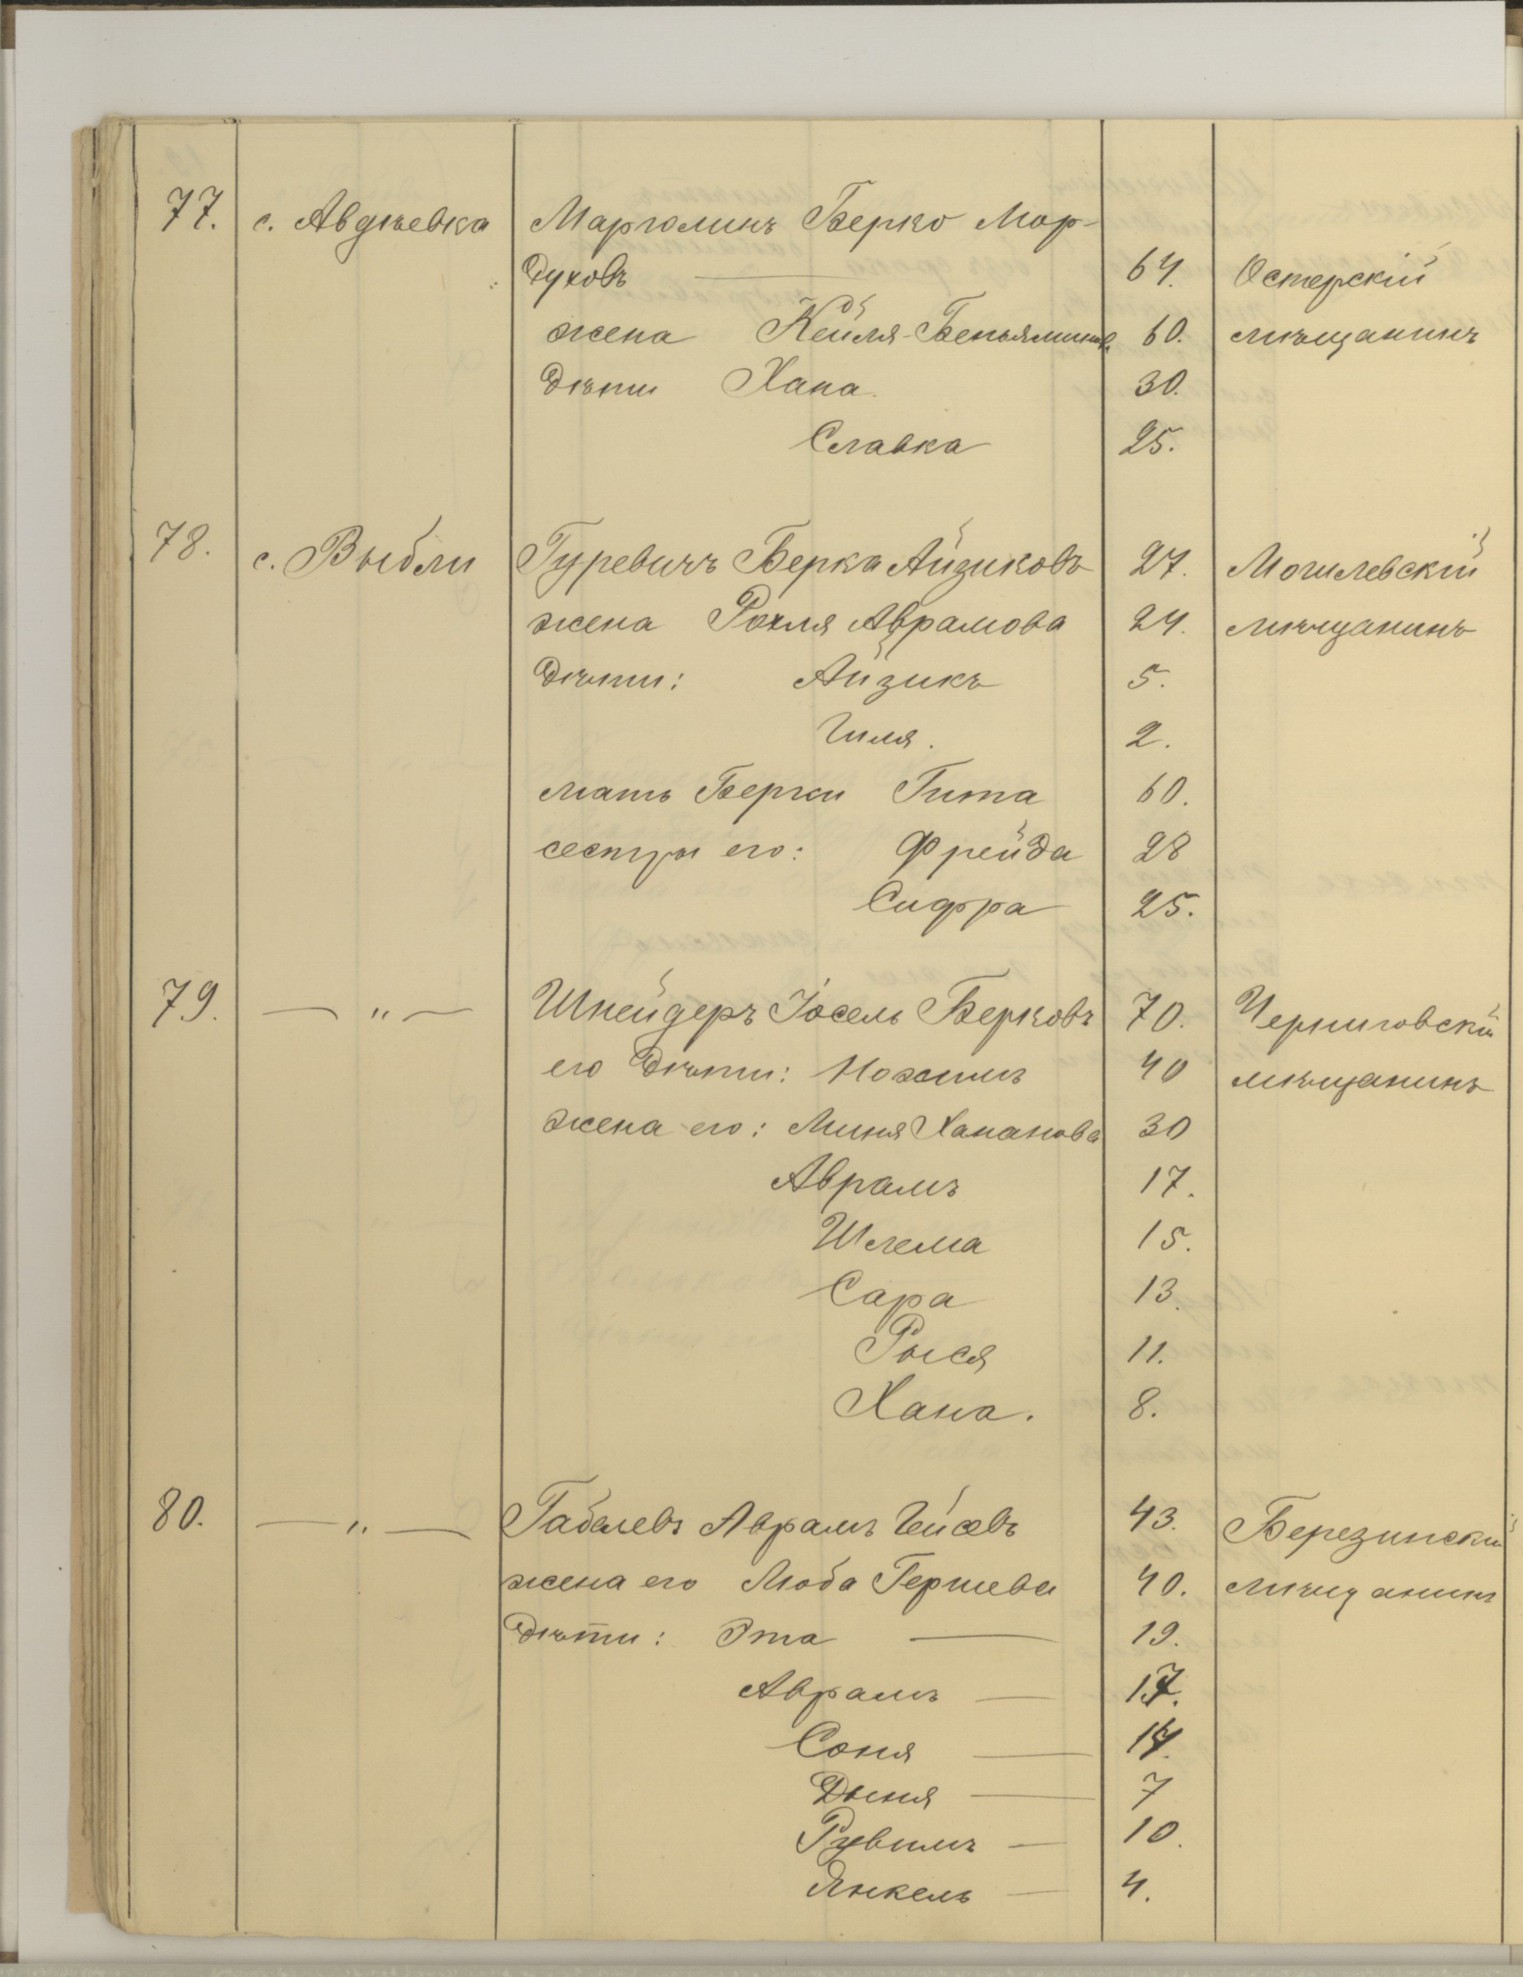 77. с. Авдѣевка Марголинъ Берко Мор-
духовъ — 64. Остерскій
жена Кейля-Беньяминов. 60. мѣщанинъ
дѣти Хана. 30.
Славка 25.
78. с. Выбли Гуревичъ Берка Айзиковъ 27. Могилевскій
жена Рохля Аврамова 24. мѣщанинъ
дѣти: Айзикъ 5.
Гиля. 2.
мать Берки Гита 60.
сестры его: Фрейда 28
Сифра 25.
79. — " — Шнейдеръ Іосель Берковъ 70. Черниговскій
его дѣти: Нохимъ 40 мѣщанинъ
жена его: Миня Хананова 30
Аврамъ 17.
Шлема 15.
Сара 13.
Рыся 11.
Хана. 8.
80. — " — Габелевъ Аврамъ 43. Березинскій
жена его Люба Гершева 40. мѣщанинъ
дѣти: Эта — 19.
Аврамъ — 17.
Соня — 14.
Дыня — 7
Рувимъ — 10.
Янкель — 4.